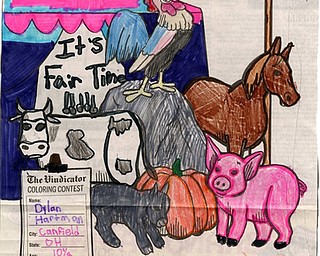 It's
Fair Time
!!!!
The Vindicator
COLORING CONTEST
Name:
Dylan
Hartman
City: Canfield
State: OH
Age: 10½